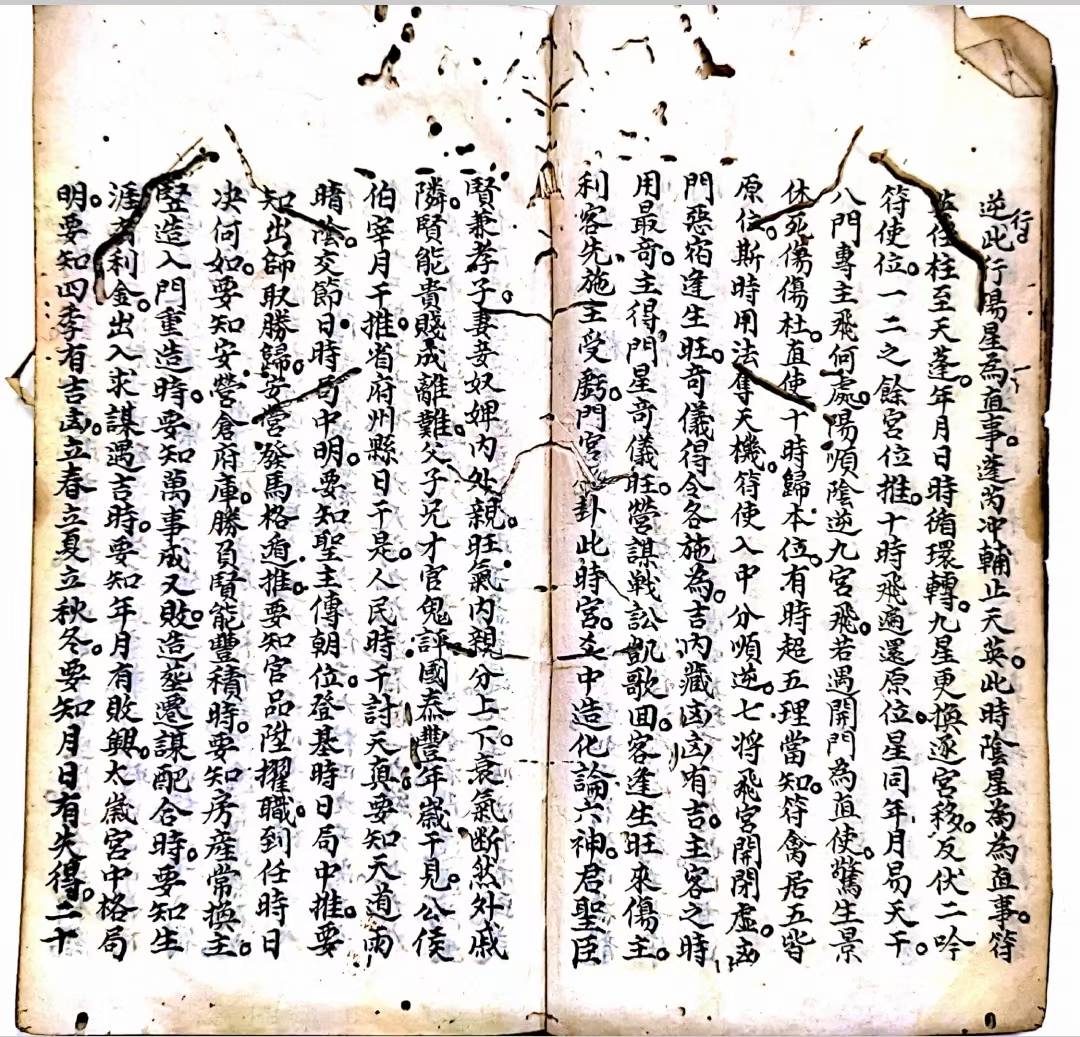 逆此行陽星為直事。蓬芮冲輔止天英。此時陰星為為直事。符
行
英任柱至天蓬。年月日時循環轉。九星更換逐宮移。反伏二吟
符使位。一二之餘宮位推。十時飛遍還原位。星同年月易天干。
八門專主飛何處。陽順陰逆九宮飛。若遇開門為直使。驚生景
休死傷傷杜。直使十時歸本位。有時超五理當知。符禽居五皆
原位。斯時用法奪天機。符使入中分順逆。七將飛宮開閉虛。凶
門惡宿逢生旺。奇儀得令各施為。吉內藏凶凶有吉。主客之時
用最奇。主得門星奇儀旺。營謀戰訟凱歌回。客逢生旺來傷主。
利客先施主受虧。門宮卦此時宮。爻中造化論六神。君聖臣
賢兼孝子。妻妾奴婢內外親。旺氣內親分上下。衰氣断然外戚
隣。賢能貴賤成離難。父子兄才官鬼評。國泰豐年歲干見。公侯
伯宰月干推。省府州縣日干是。人民時干討天真。要知天道雨
晴陰。交節日時局中明。要知聖主傳朝位。登基時日局中推。要
知出師取勝歸。安營發馬格遁推。要知官品陞擢職。到任時日
决何如。要知安營倉府庫。勝負賢能豐積時。要知房産常換主。
竪造入門重造時。要知萬事成又敗。造葬遷謀配合時。要知生
涯有利金。出入求謀遇吉時。要知年月有敗興。太歲宮中格局
明。要知四季有吉凶。立春立夏立秋冬。要知月日有失得。二十